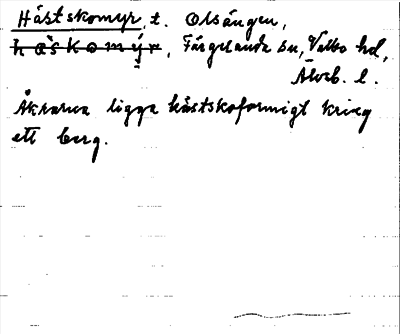 Hästskomyr, t. Olsängen,
h a s k o m y r, Färgelanda sn, Valbo hd,
Älvsb. l.
Åkrarna ligga hästskoformigt kring
ett berg.